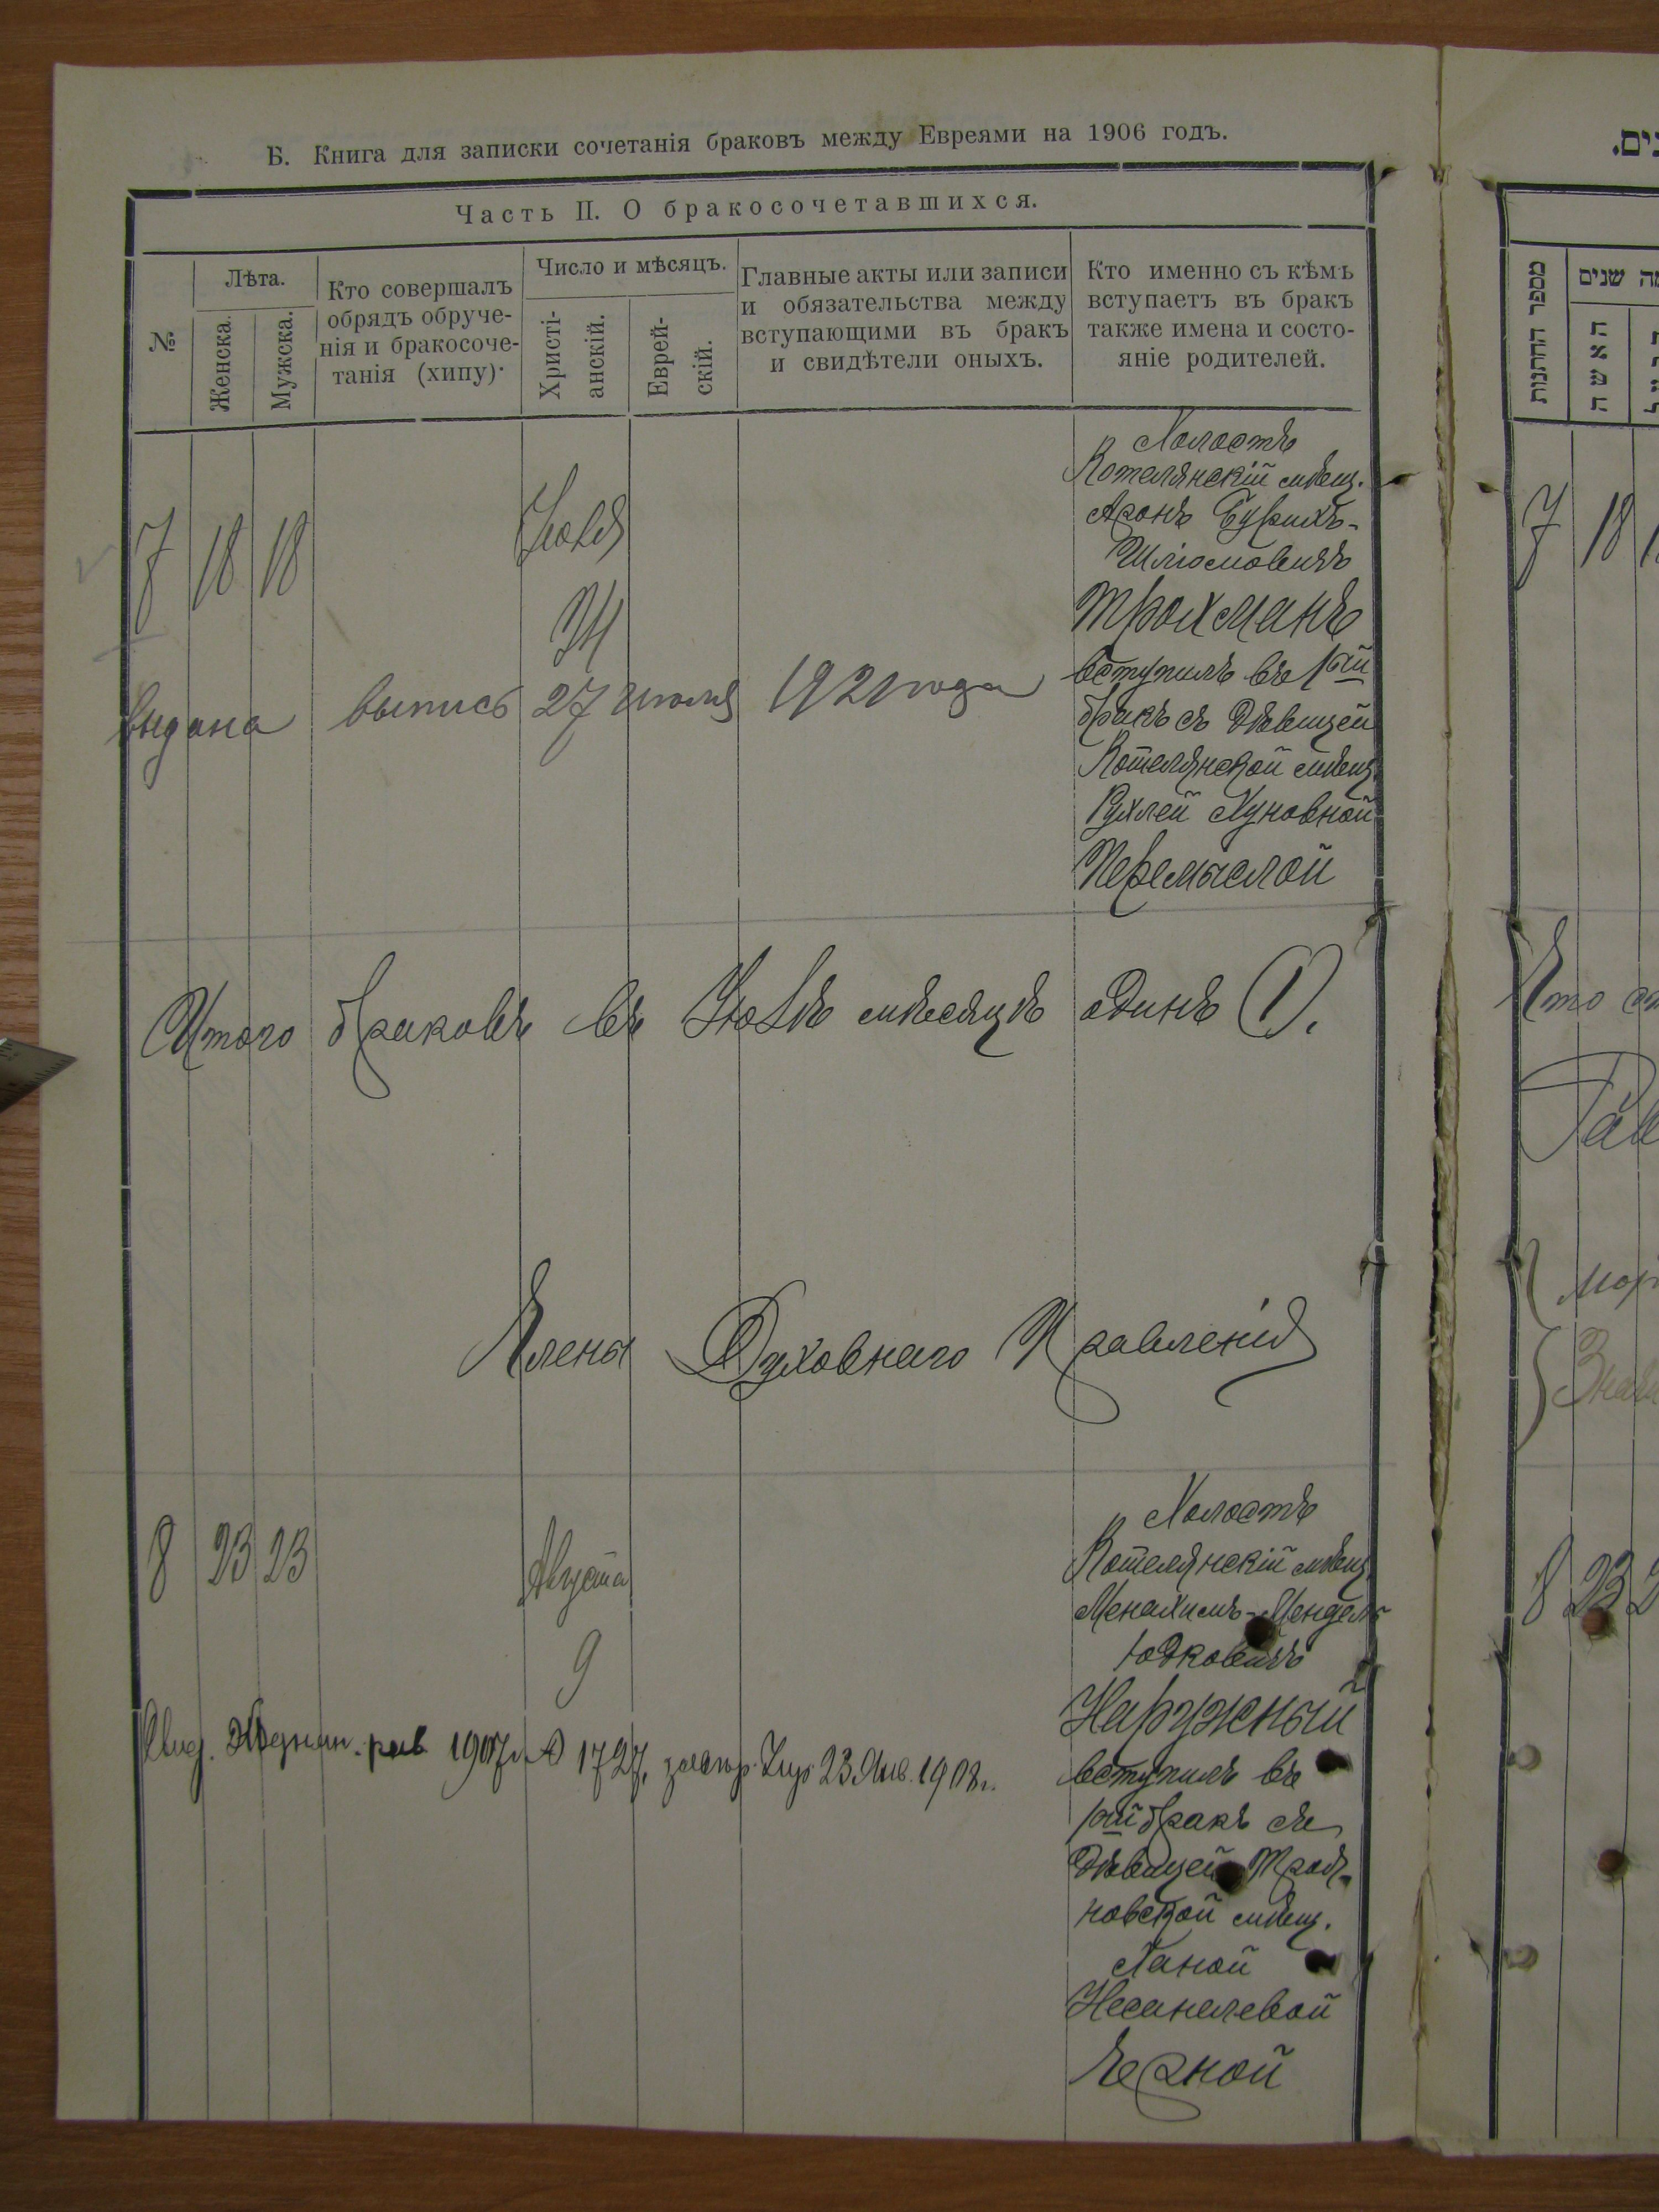 Б. Книга для записки сочетанія браковъ между Евреями на 1906 годъ.
Часть II. О бракосочетавшихся.
№
Лѣта.
Женска.
Мужска.
Кто совершалъ
обрядъ обруче-
нія и бракосоче-
танія (хипу).
Число и мѣсяцъ.
Христі-
анскій.
Еврей-
скій.
Главные акты или записи
и обязательства между
вступающими въ бракъ
и свидѣтели оныхъ.
Кто именно съ кѣмъ
вступаетъ въ бракъ
также имена и состо-
яніе родителей.
7 18 18
Іюля
Холостъ
Котелянскій мѣщ.
Аронъ Бурихъ-
Шлiомовичъ
Тройманъ
вступилъ въ 1ый
бракъ съ дѣвицей
Котелянской мѣщ.
Рухлей Хуновной
Перемыслой
выдана выпись 27 июля 1921 года
Итого браковъ въ Іюлѣ мѣсяцѣ одинъ (1).
Члены Духовнаго Правленія
8 23 23
Августа
9
Холостъ
Котелянскій мѣщ.
Менахимъ-Мендель
Юдковичъ
Наружный
вступилъ въ
1ый бракъ съ
дѣвицей Троя-
новской мѣщ.
Ханой
Несанелевой
Черной
1907 г. № 1727, 23 Янв. 1908 г.
מספר החתונות
שנים
האשה
7 18
8 23